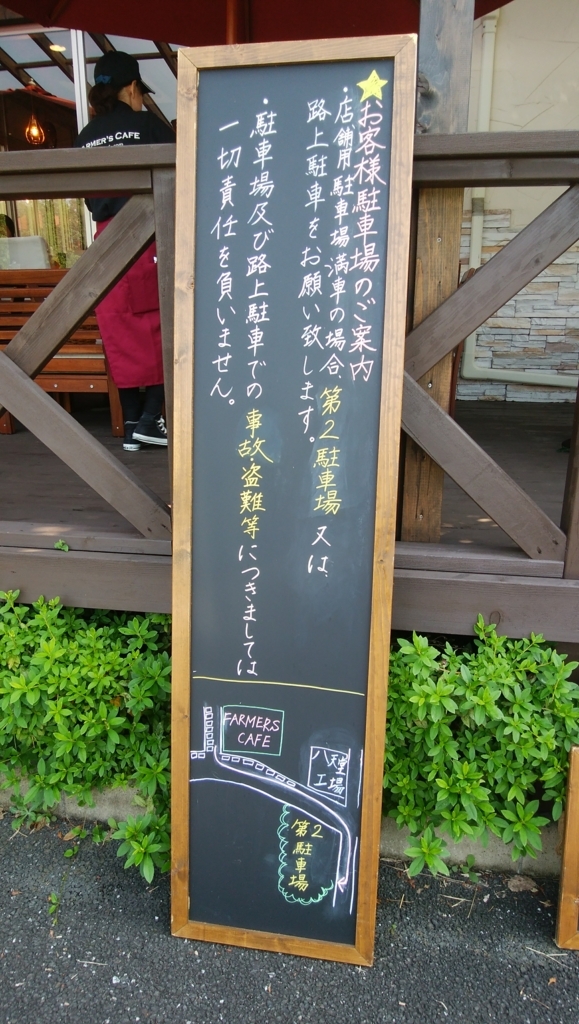 お客様駐車場のご案内
・店舗用駐車場満車の場合 第2駐車場 又は、
路上駐車をお願い致します。
・駐車場及び路上駐車での 事故盗難等につきましては
一切責任を負いません。
FARMERS
CAFE
八天堂
工場
第2
駐車場
FARMER'S CAFE